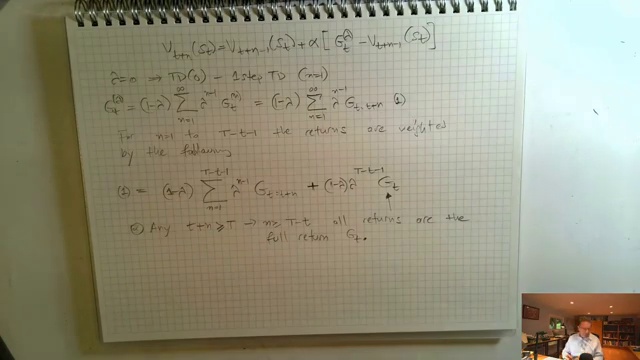 V_{t+n}(S_t) = V_{t+n-1}(S_t) + α[G_t^{(λ)} - V_{t+n-1}(S_t)]
λ=0 ⇒ TD(0) - 1 step TD (n=1)
G_t^{(λ)} = (1-λ) ∑_{n=1}^{∞} λ^{n-1} G_t^{(n)} = (1-λ) ∑_{n=1}^{∞} λ^{n-1} G_{t:t+n} (1)
For n=1 to T-t-1 the returns are weighted
by the following
(1) = (1-λ) ∑_{n=1}^{T-t-1} λ^{n-1} G_{t:t+n} + (1-λ) λ^{T-t-1} G_t
② Any t+n ≥ T → n ≥ T-t all returns are the
full return G_t.